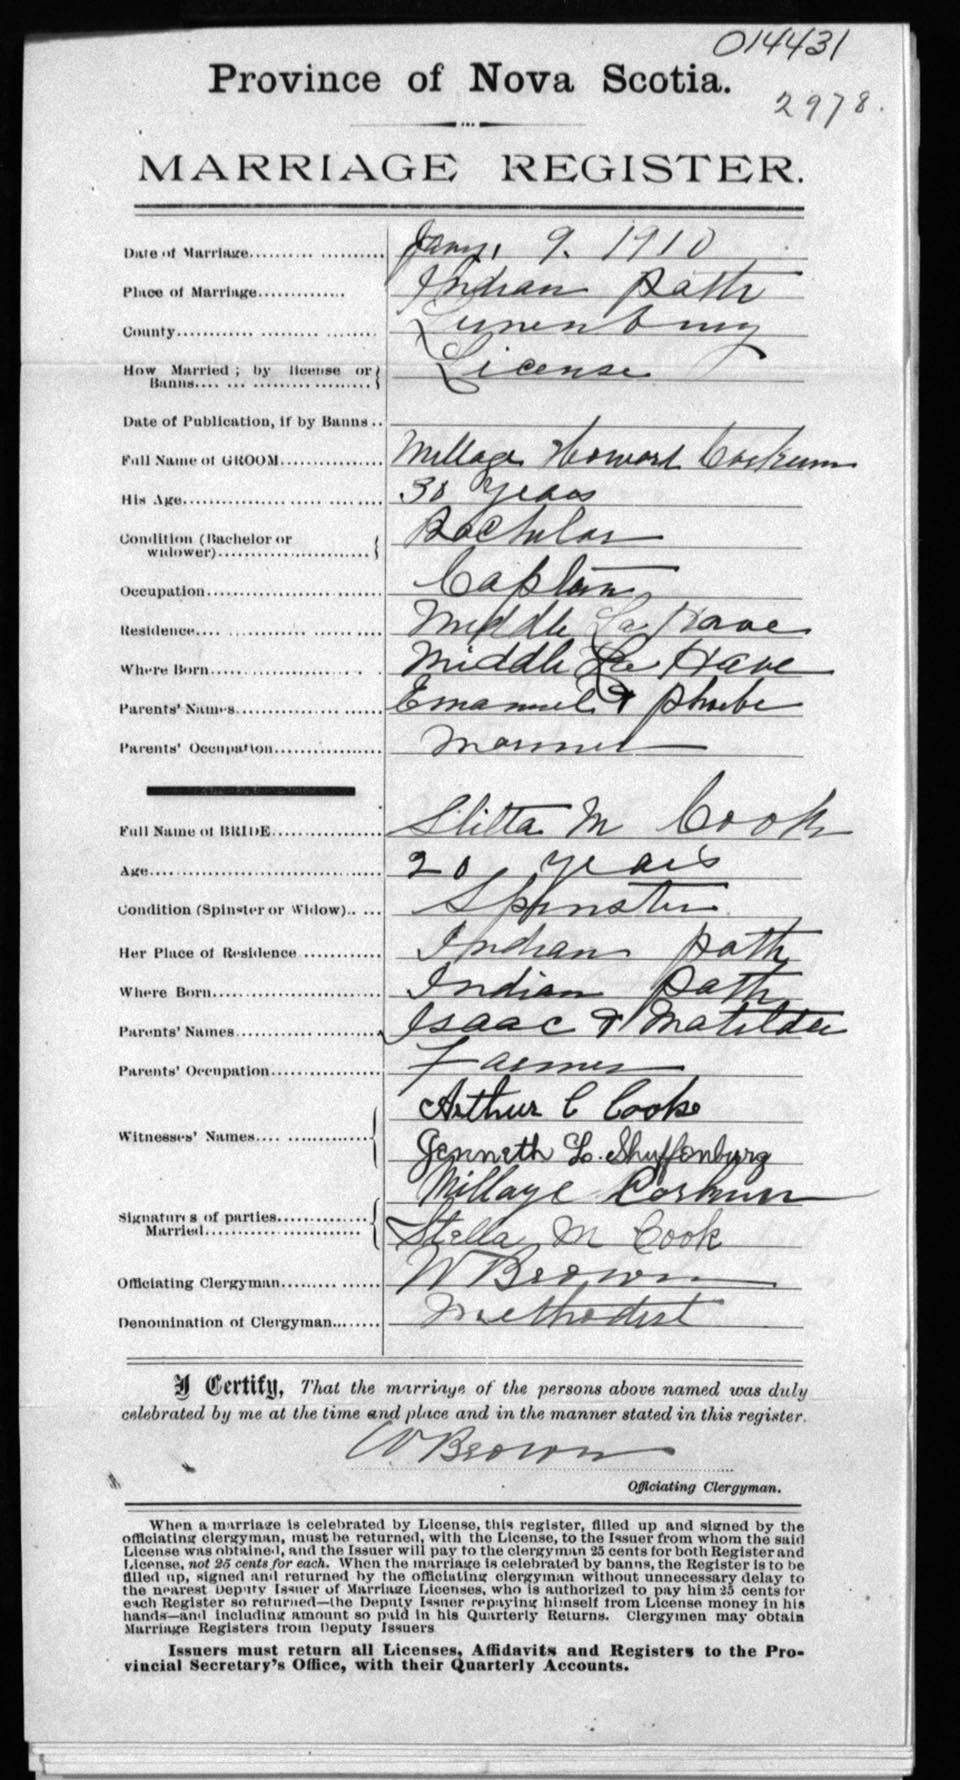 014431
Province of Nova Scotia.
2978.
MARRIAGE REGISTER.
Date of Marriage Jany. 9. 1910
Place of Marriage Indian Path
County Lunenburg
How Married; by license or Banns License
Date of Publication, if by Banns
Full Name of GROOM Millage Howard Corkum
His Age 30 years
Condition (Bachelor or widower) Bachelor
Occupation Captain
Residence Middle La Have
Where Born Middle La Have
Parents' Names Emanuel & Phoebe
Parents' Occupation Mariner
Full Name of BRIDE Stella M Cook
Age 20 years
Condition (Spinster or Widow) Spinster
Her Place of Residence Indian Path
Where Born Indian Path
Parents' Names Isaac & Matilda
Parents' Occupation Farmer
Witnesses' Names Arthur C Cooke
Jenneth L. Shuffenburg
Signatures of parties Married Millage Corkum
Stella M Cook
Officiating Clergyman W Brown
Denomination of Clergyman Methodist
I Certify, That the marriage of the persons above named was duly
celebrated by me at the time and place and in the manner stated in this register.
W Brown
Officiating Clergyman.
When a marriage is celebrated by License, this register, filled up and signed by the
officiating clergyman, must be returned, with the License, to the Issuer from whom the said
License was obtained, and the Issuer will pay to the clergyman 25 cents for both Register and
License, not 25 cents for each. When the marriage is celebrated by banns, the Register is to be
filled up, signed and returned by the officiating clergyman without unnecessary delay to
the nearest Deputy Issuer of Marriage Licenses, who is authorized to pay him 25 cents for
each Register so returned—the Deputy Issuer repaying himself from License money in his
hands—and including amount so paid in his Quarterly Returns. Clergymen may obtain
Marriage Registers from Deputy Issuers
Issuers must return all Licenses, Affidavits and Registers to the Pro-
vincial Secretary's Office, with their Quarterly Accounts.